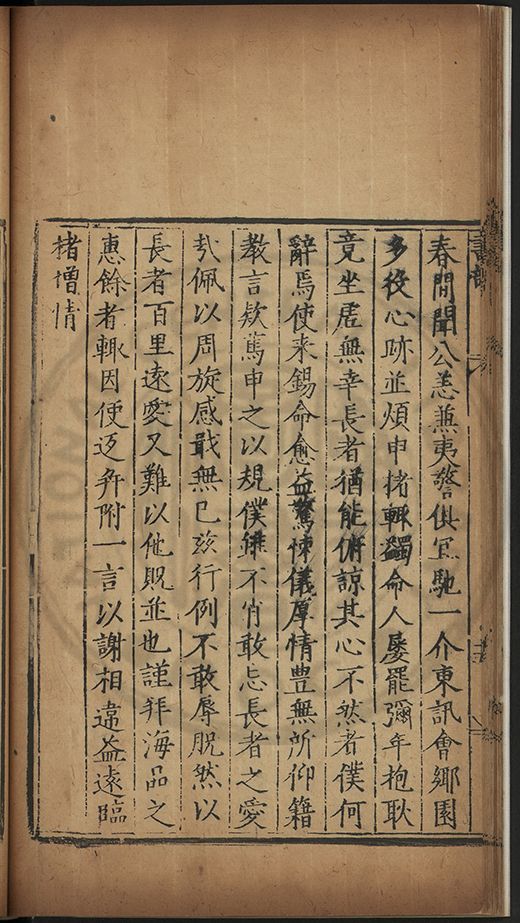 春間聞公恙兼夷警俱宜馳一介東訊會鄉園
多役心跡並煩申楮輒蠲命人屡罷彌年抱耿
竟坐居無幸長者猶能俯諒其心不然者僕何
辭焉使来錫命愈益驚悚儀厚情豊無所仰籍
教言欵篤申之以規僕雖不肖敢忘長者之愛
㢤佩以周旋感戢無已兹行例不敢辱脱然以
長者百里遠愛又難以他贶並也謹拜海品之
惠餘者輒因便返弁附一言以謝相違益遠臨
楮增情